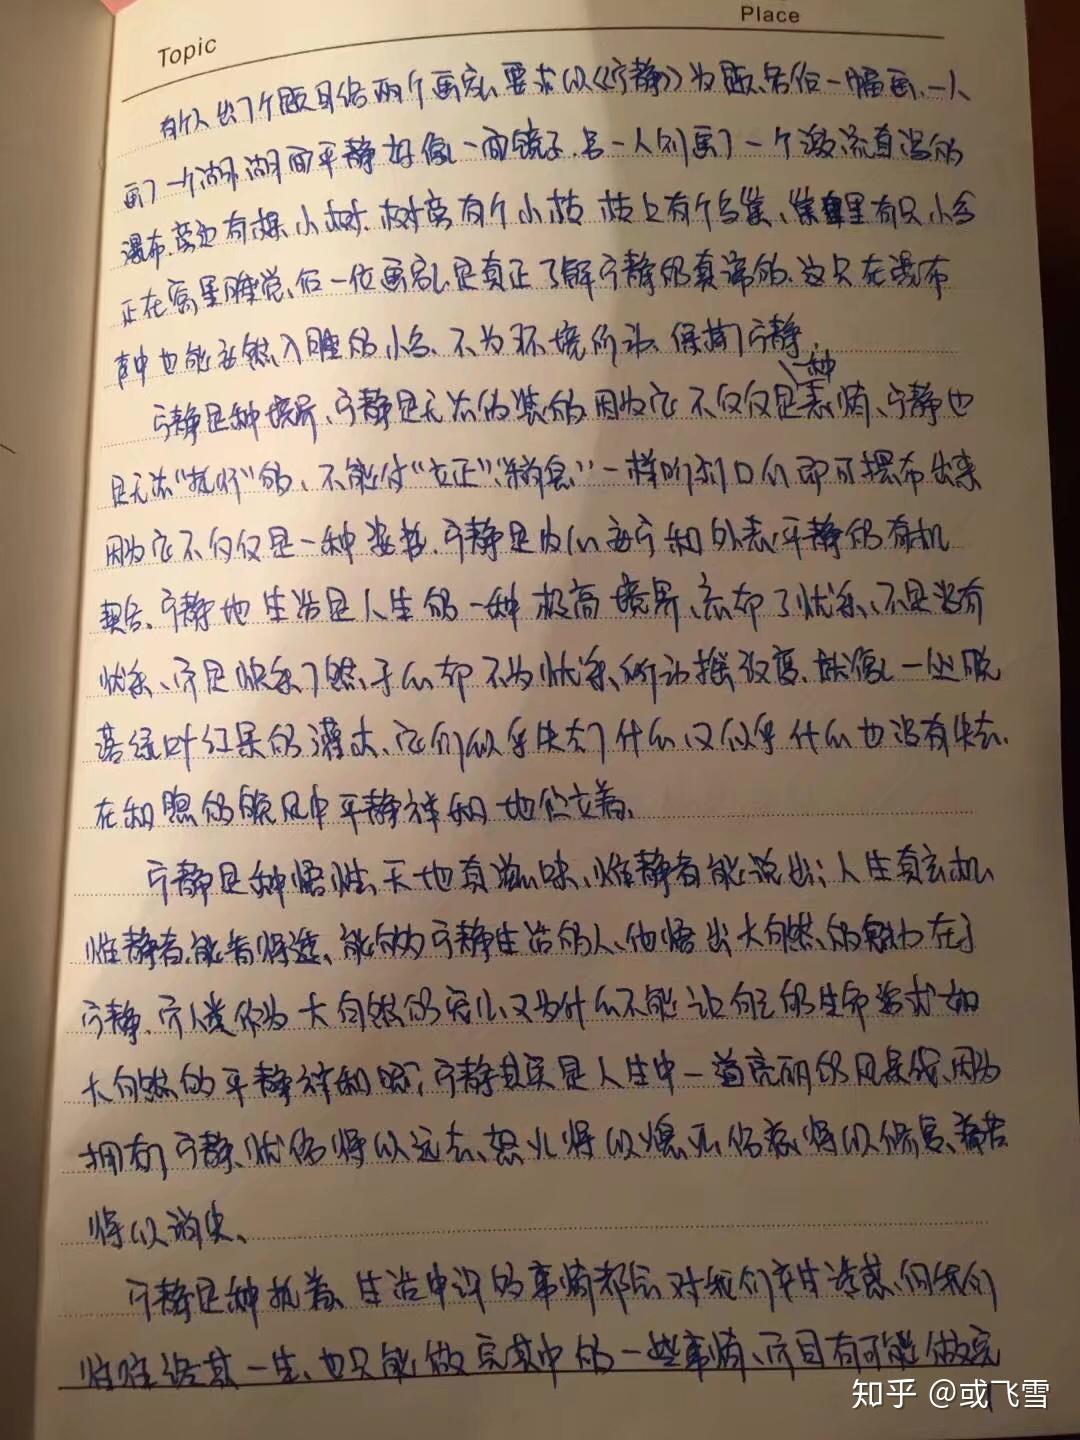 Topic
Place
有个人出了个题目给两个画家,要求以《宁静》为题,各作一幅画.一人
画了一个湖,湖面平静好像一面镜子.另一人则画了一个激流直泻的
瀑布.旁边有棵小树.树旁有个小枝 枝上有个鸟巢、巢里有只小鸟
正在窝里睡觉、后一位画家是真正了解宁静的真谛的.这只在瀑布
声中也能安然入睡的小鸟、不为环境所动、保持了宁静.
宁静是种境界、宁静是无法伪装的 因为它不仅仅是一种表情、宁静也
是无法"批修"的、不能像"立正"、"稍息"一样听到口令即可摆布出来
因为它不仅仅是一种姿态.宁静是内心安宁和外表平静的有机
契合、宁静地生活是人生的一种极高境界、忘却了忧愁、不是没有
忧愁、而是愁了然于心却不为忧愁所动摇改变.就像一处脱
落绿叶红果的灌木、它们似乎失去了什么又似乎什么也没有失去.
在和煦的晚风中平静祥和地伫立着.
宁静是种悟性、天地真滋味、惟静者能说出;人生真玄机
惟静者能看得透、能够为宁静生活的人、他悟出大自然的魅力在于
宁静.而人类作为大自然的宠儿又为什么不能让自己的生命要求如
大自然的平静祥和呢?宁静其实是人生中一道亮丽的风景线,因为
拥有了宁静、忧伤得以远去、怒火得以熄灭.伤悲得以修复、痛苦
得以消失、
宁静是种执着、生活中许的事情都会对我们产生诱惑、但我们
往往终其一生、也只能做完其中的一些事情、而且有可能做完
知乎 @或飞雪